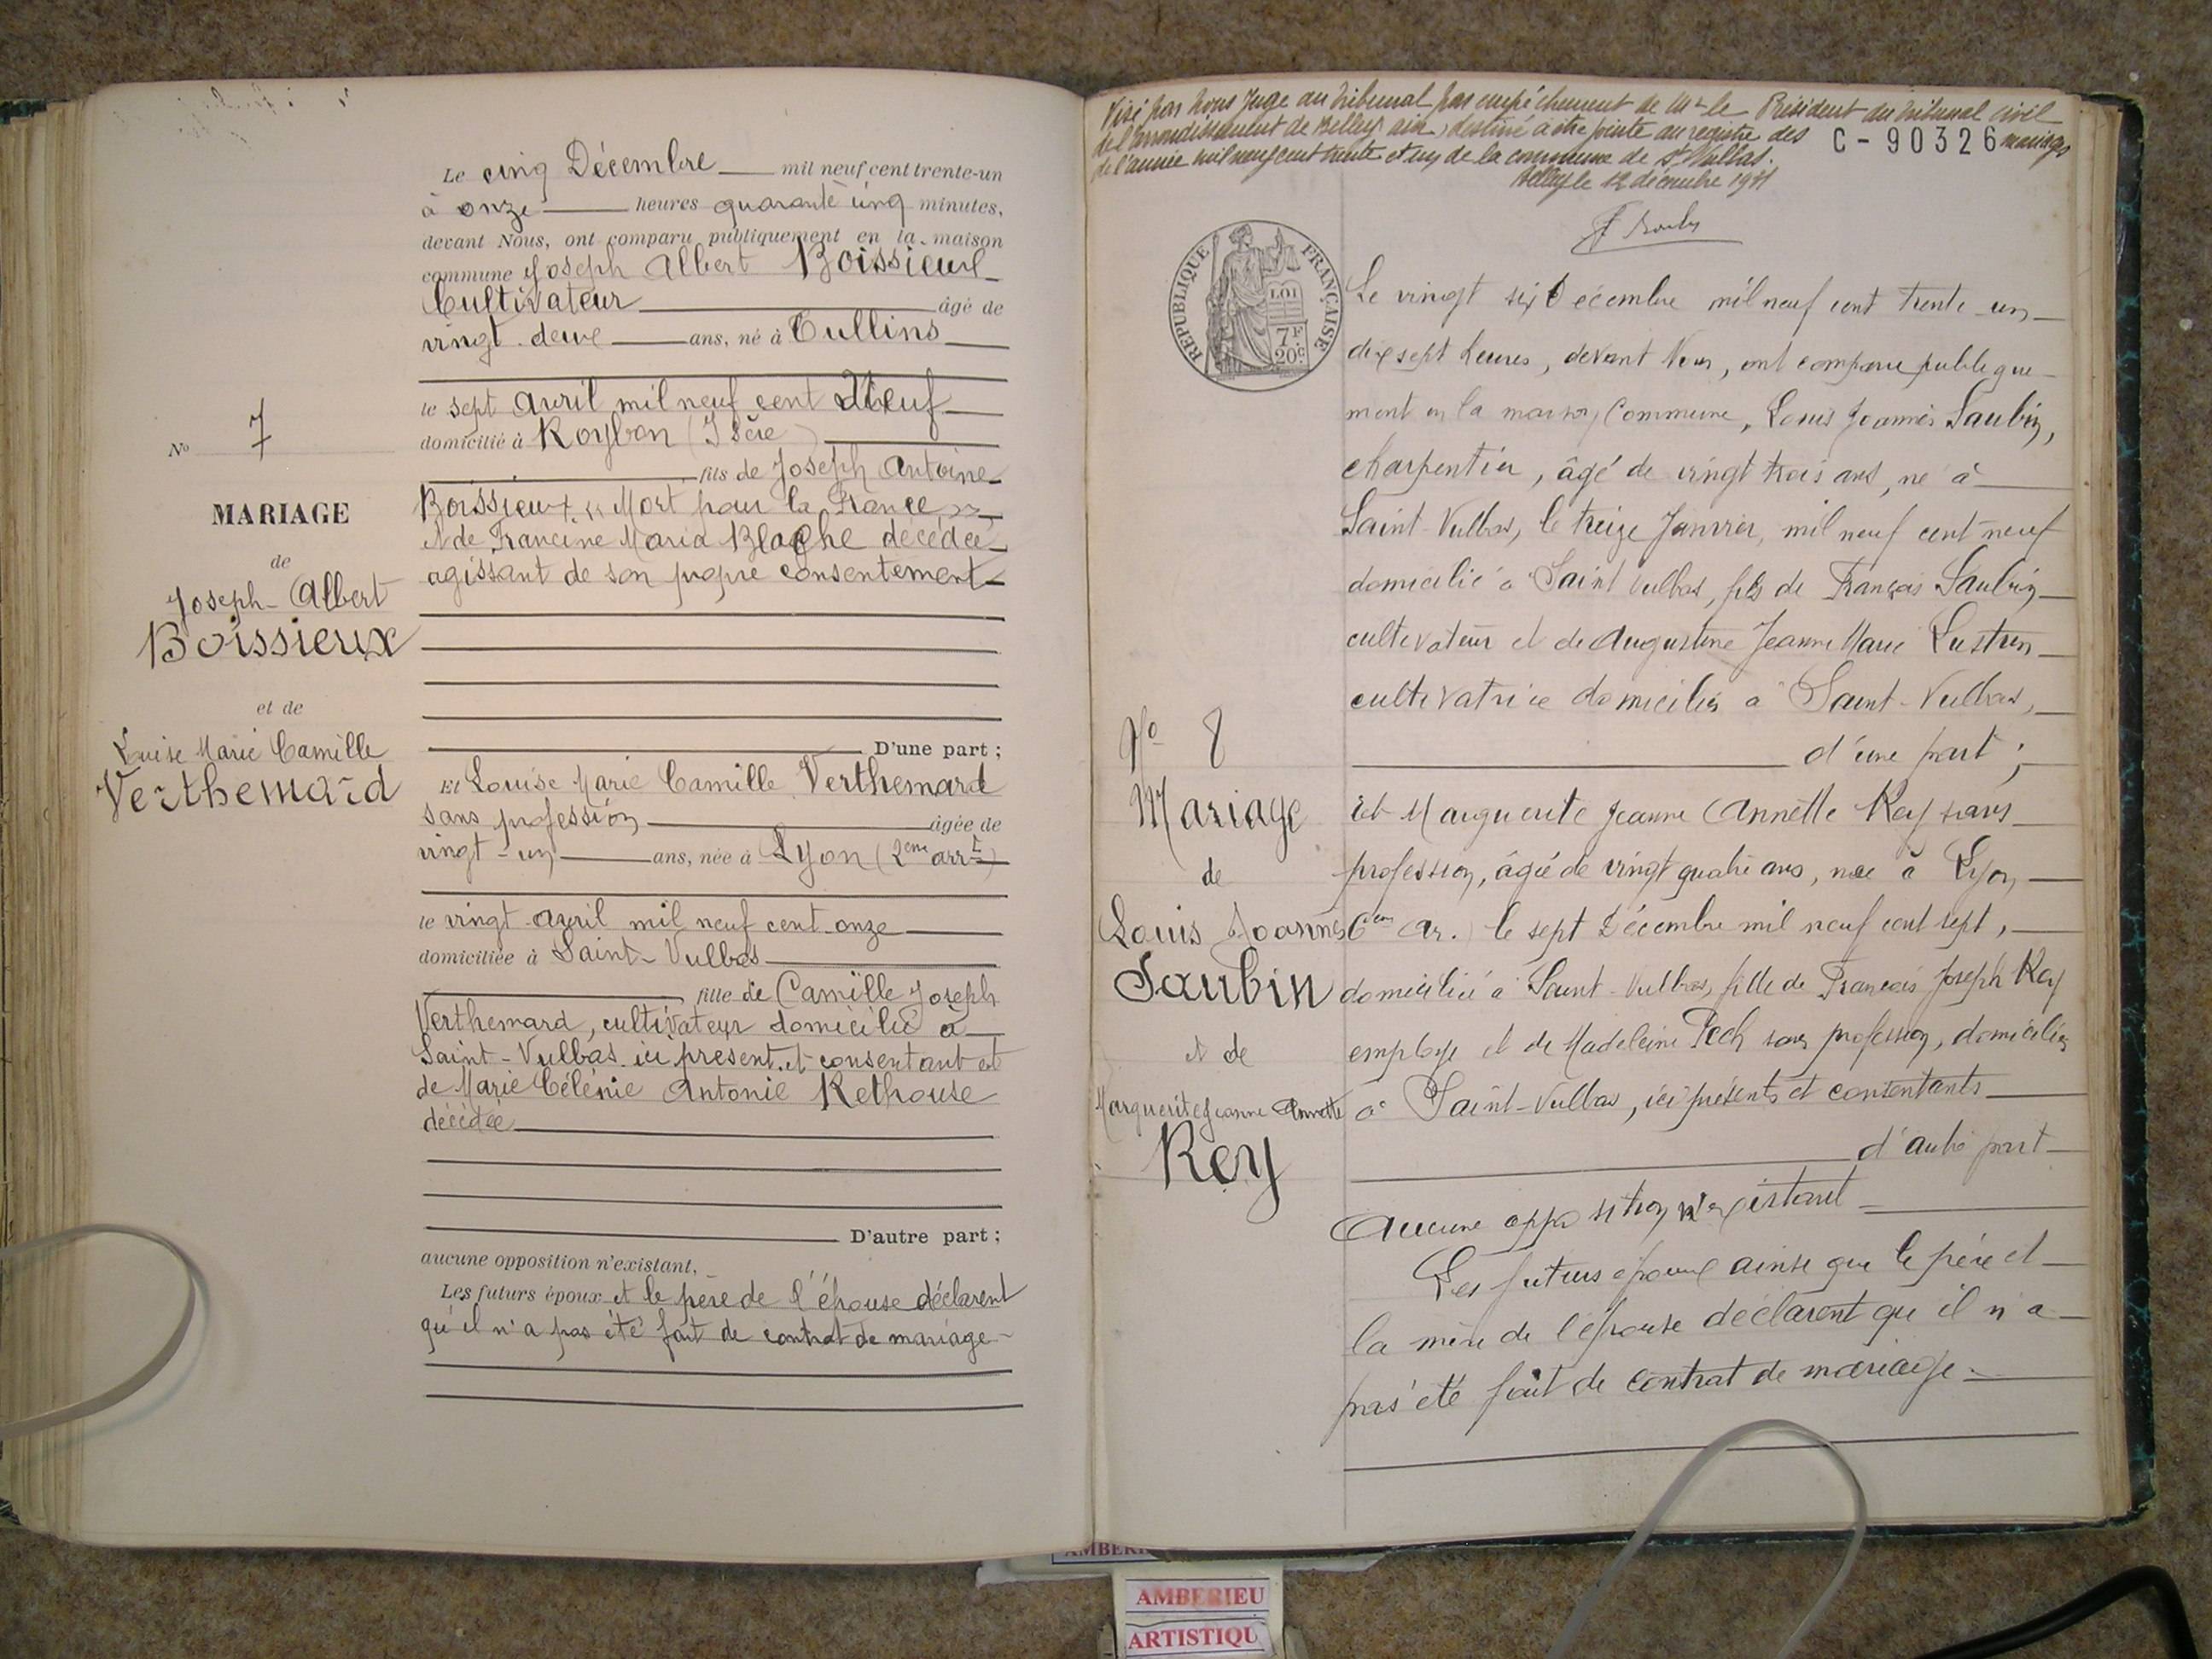 Le cinq Décembre mil neuf cent trente-un
à onze heures quarante cinq minutes,
devant Nous, ont comparu publiquement en la maison
commune Joseph Albert Boissieux
Cultivateur âgé de
vingt deux ans, né à Tullins
le sept avril mil neuf cent Neuf
domicilié à Roybon (Isère)
fils de Joseph Antoine
Boissieux "Mort pour la France"
et de Francine Maria Blache décédée
agissant de son propre consentement
No 7
MARIAGE
de
Joseph-Albert
Boissieux
et de
Louise Marie Camille
Verthemard
D'une part ;
Et Louise Marie Camille Verthemard
sans profession âgée de
vingt-un ans, née à Lyon (2eme arrt)
le vingt avril mil neuf cent onze
domiciliée à Saint-Vulbas
fille de Camille Joseph
Verthemard, cultivateur domicilié à
Saint-Vulbas ici présent et consentant et
de Marie Célénie Antonie Rethouse
décédée
D'autre part ;
aucune opposition n'existant,
Les futurs époux et le père de l'épouse déclarent
qu'il n'a pas été fait de contrat de mariage
Visé par nous Juge au tribunal par empêchement de Mr le Président du tribunal civil
de l'arrondissement de Belley ain, destiné à être jointe au registre des C-90326 mariages
de l'année mil neuf cent trente et un de la commune de St Vulbas.
Belley le 12 décembre 1931
REPUBLIQUE FRANÇAISE
LOI
7F
20c
Le vingt six Décembre mil neuf cent trente-un
dix sept heures, devant Nous, ont comparu publique-
ment en la maison Commune, Louis Joannès Saubin,
charpentier, âgé de vingt trois ans, né à
Saint-Vulbas, le treize Janvier, mil neuf cent neuf
domicilié à Saint Vulbas, fils de François Saubin
cultivateur et de Augustine Jeanne Marie Lustrin
cultivatrice domiciliés à Saint-Vulbas,
d'une part ;
No 8
Mariage
de
Louis Joannès
Saubin
et de
Marguerite Jeanne Annette
Rey
Et Marguerite Jeanne Annette Rey sans
profession, âgée de vingt quatre ans, née à Lyon
6em ar.) le sept Décembre mil neuf cent sept,
domiciliée à Saint-Vulbas, fille de François Joseph Rey
employé et de Madeleine Pech sans profession, domiciliés
à Saint-Vulbas, ici présents et consentants
d'autre part
Aucune opposition n'existant
Les futurs époux ainsi que le père et
la mère de l'épouse déclarent qu'il n'a
pas été fait de contrat de mariage
AMBERIEU
ARTISTIQU